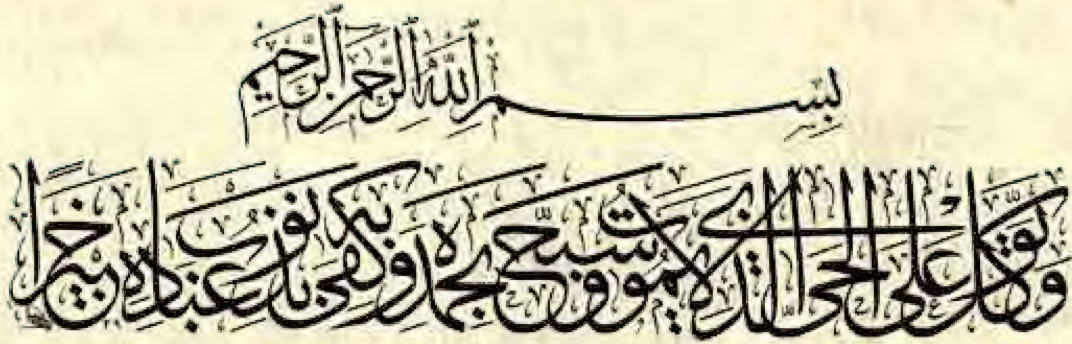 بِسْمِ ٱللَّهِ ٱلرَّحْمَٰنِ ٱلرَّحِيمِ
وتوكل على الحي الذي لا يموت وسبح بحمده وكفى به بذنوب عباده خبيرا